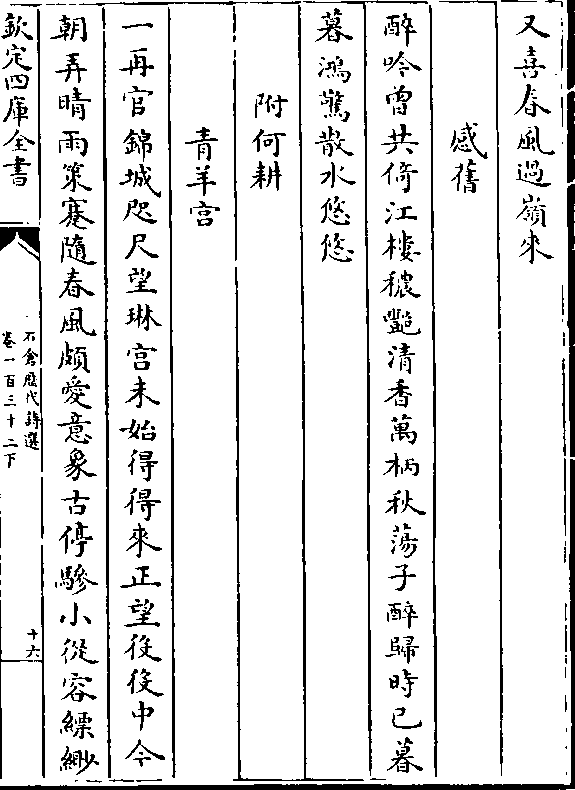 又喜春風過嶺來
感舊
醉吟曾共倚江樓穠豔清香萬柄秋蕩子醉歸時已暮
暮鴻驚散水悠悠
附何耕
青羊宫
一再官錦城咫尺望琳宫未始得得來正望役役中今
朝弄晴雨策蹇隨春風頗愛意象古停驂小從容縹緲
欽定四庫全書
石倉歷代詩選
卷一百三十二下
十六